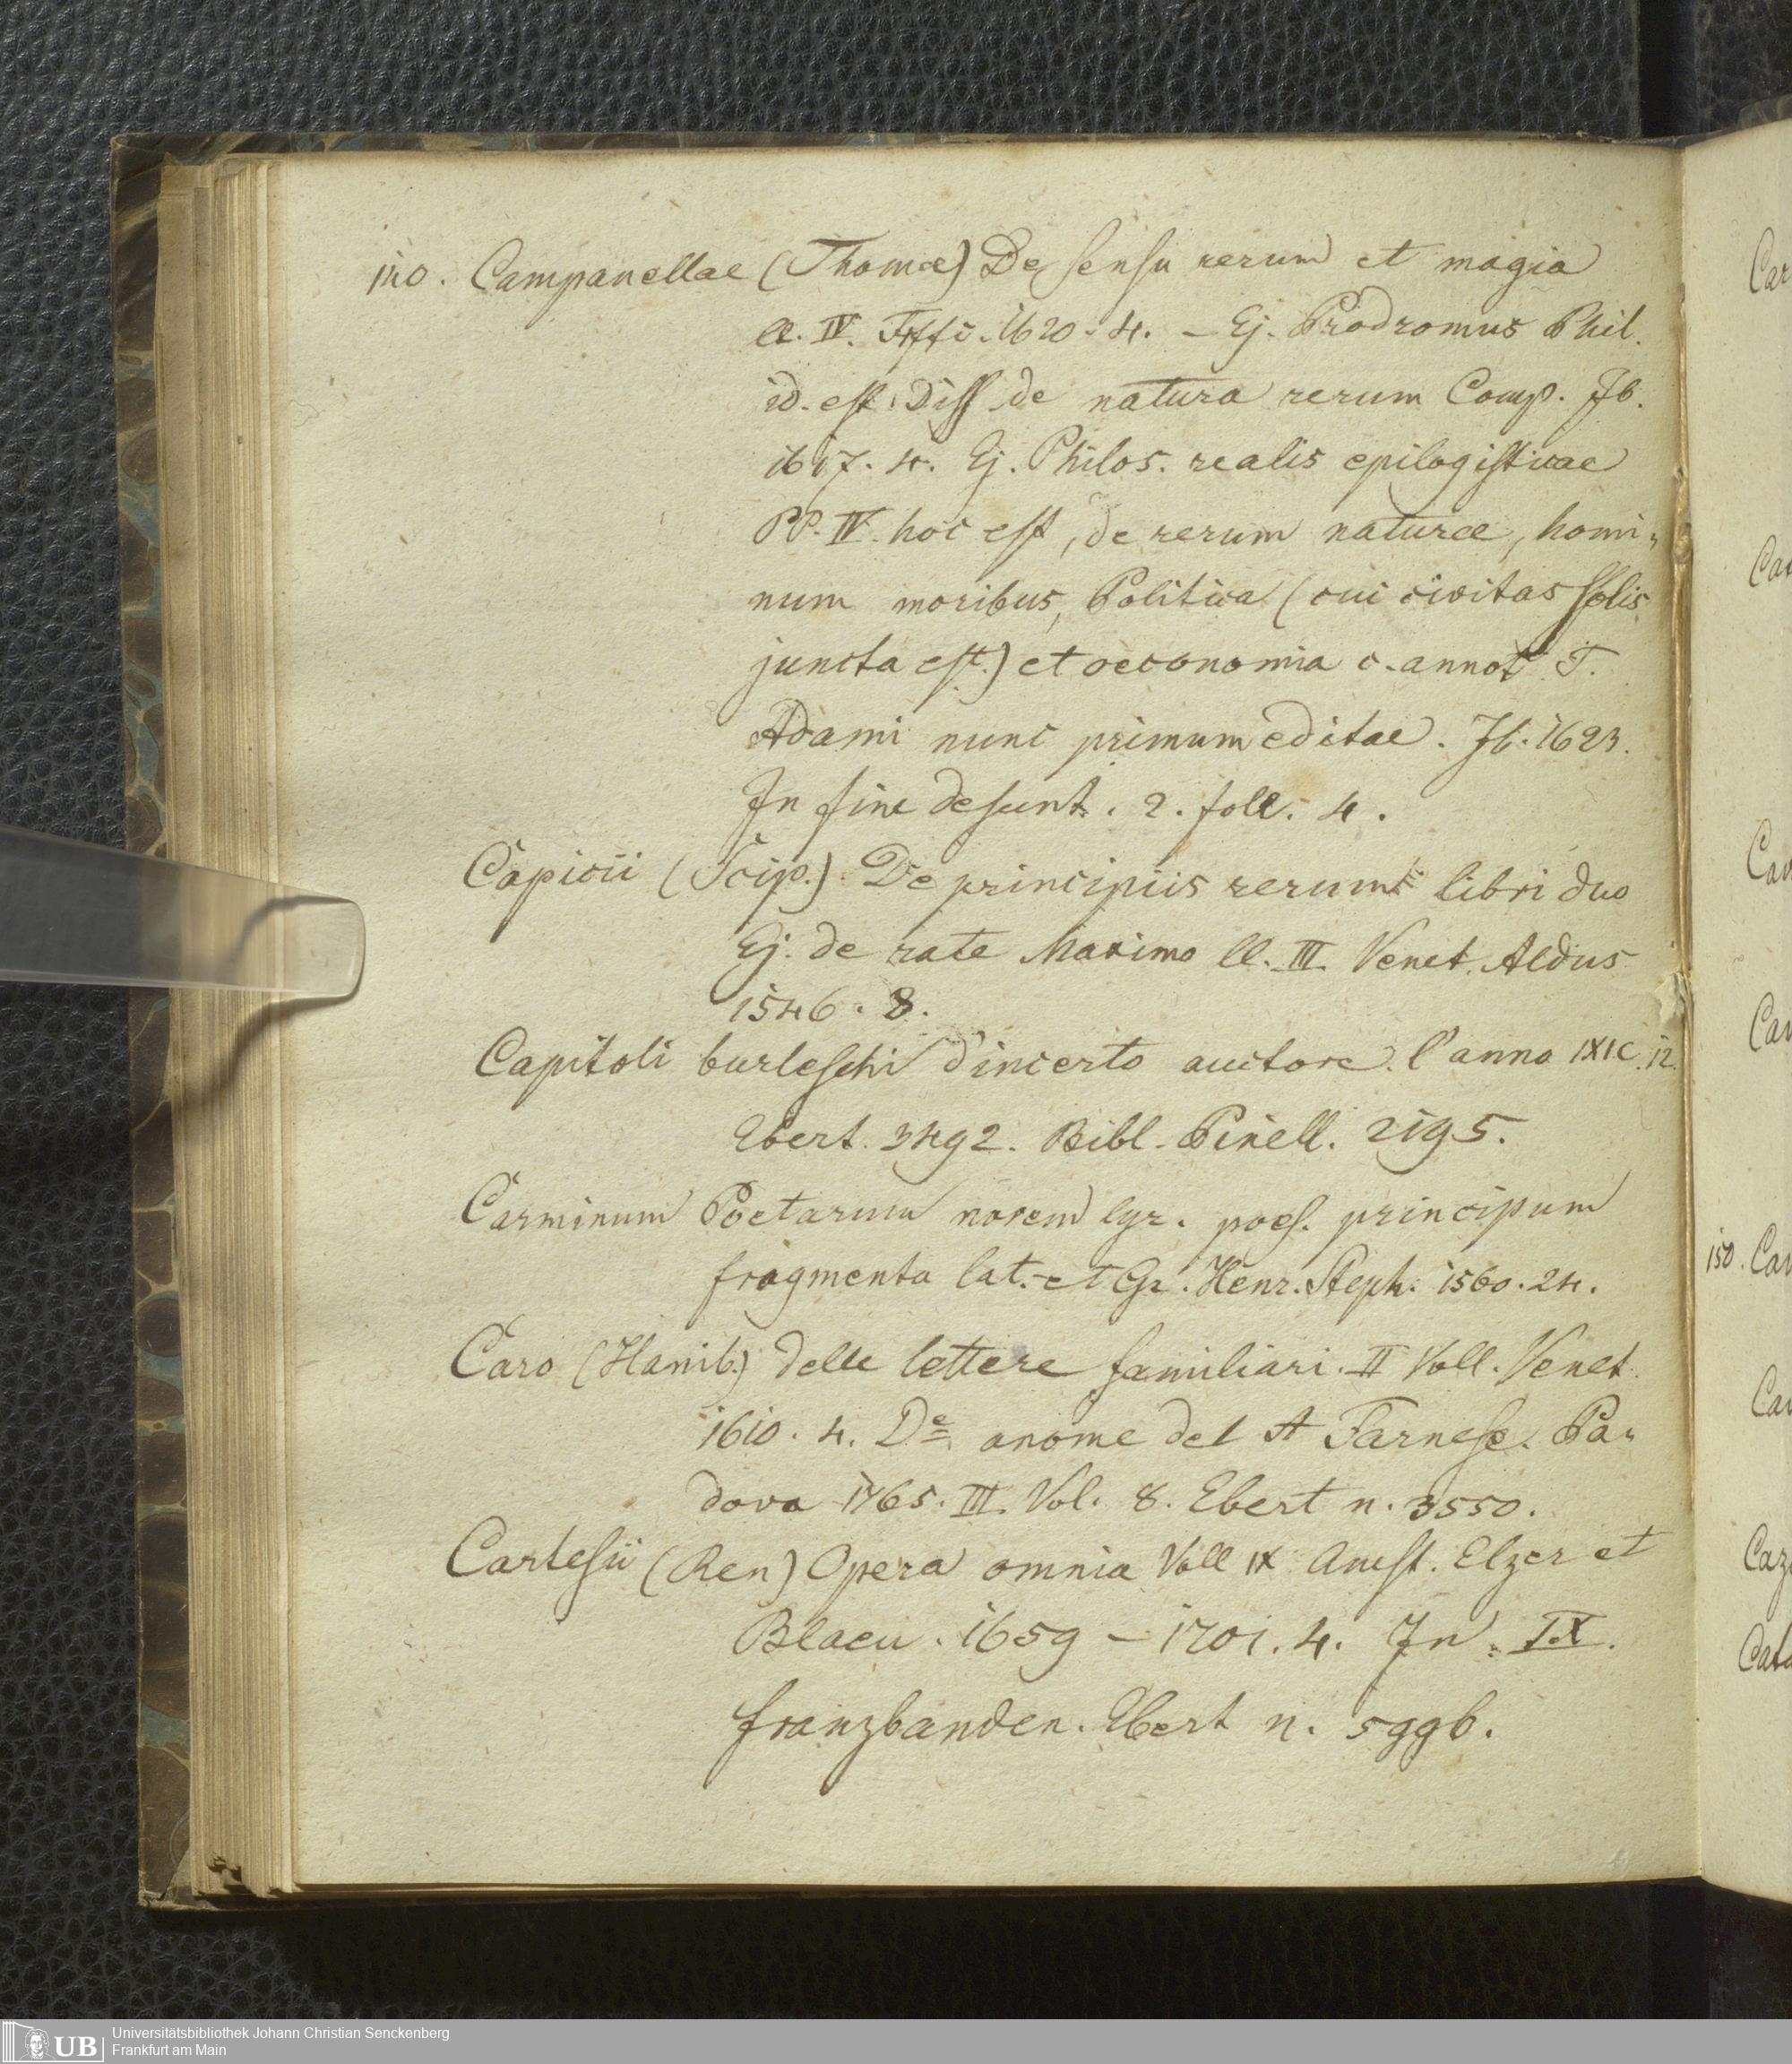 140. Campanellae (Thomæ) De sensu rerum et magia
ll. IV. Fffti. 1620. 4. – Ej. Prodromus Phil.
id. est. Diss de natura rerum Comp. Ib.
1617. 4. Ej. Philos. realis epilogisticae
PP. IV. hoc est, de rerum naturæ, homi-
num moribus, Politica (cui civitas Solis
juncta est.) et oeconomia c. annot T.
Adami nunc primum editae. Ib. 1623.
In fine desunt. 2. foll. 4.
Capicii (Scip.) De principiis rerum libri duo
Ej. de rate Maximo ll. III. Venet. Aldus
1546. 8.
Capitoli burleschi d'incerto auctore. l'anno IXIC. 12.
Ebert. 3492. Bibl. Pinell. 2195.
Carminum Poetarum novem lyr. poes. principum
fragmenta lat. et Gr. Henr. Steph. 1560. 24.
Caro (Hanib.) delle lettere familiari. II Voll. Venet.
1610. 4. De anome del A Farnese. Pa-
dova 1765. III. Vol. 8. Ebert n. 3550.
Cartesii (Ren) Opera omnia Voll IX Amst. Elzer et
Blaeu. 1659 – 1701. 4. In. IX.
franzbanden. Ebert n. 5996.
Car
Ca
Ca
Ca
150. Ca
Ca
Caz
Cat
UB
Universitätsbibliothek Johann Christian Senckenberg
Frankfurt am Main